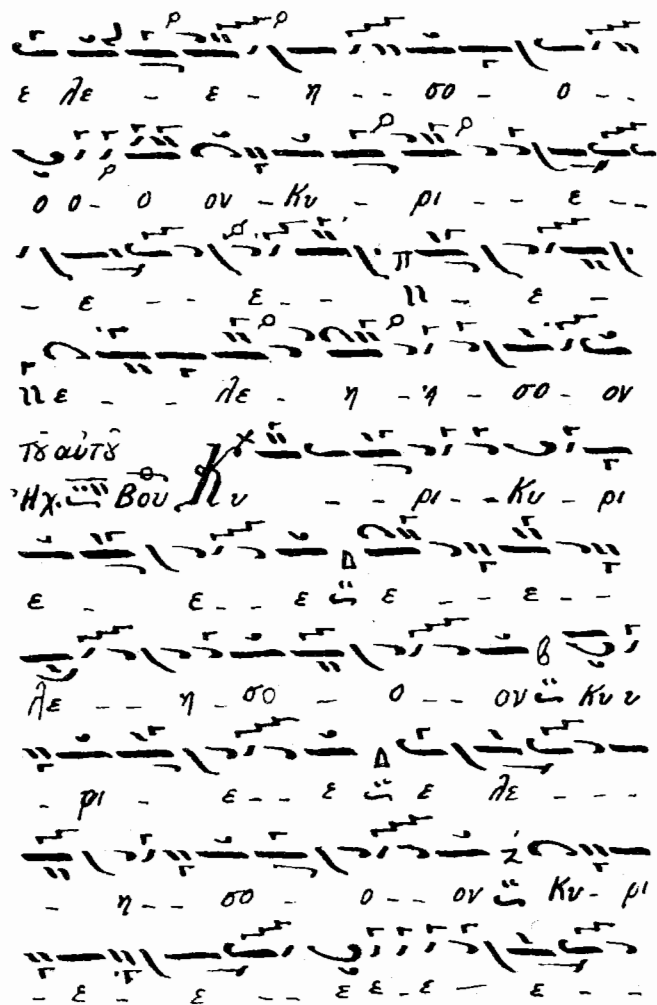 ε λε - ε - η - σο - ο - -
ο ο - ο ον - Κυ - ρι - - ε - - -
- ε - - ε - - π - ε -
πε - - λε - η - η - σο - ον
τȣ αὐτȣ
Ἦχ. Βου Κυ - - ρι - - Κυ - ρι
ε - ε - - ε ε - - ε - -
λε - - η - σο - ο - - ον Κυ υ
- ρι - ε - - ε ε λε - - -
- η - - σο - ο - - ον Κυ - ρι
- ε - ε - - ε ε - ε - ε - -